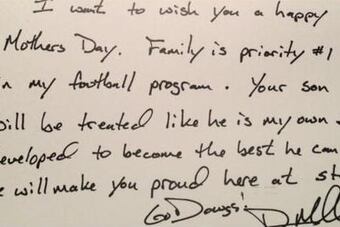 I want to wish you a happy
Mothers Day. Family is priority #1
in my football program. Your son
will be treated like he is my own
developed to become the best he can
will make you proud here at
Go Dawgs!